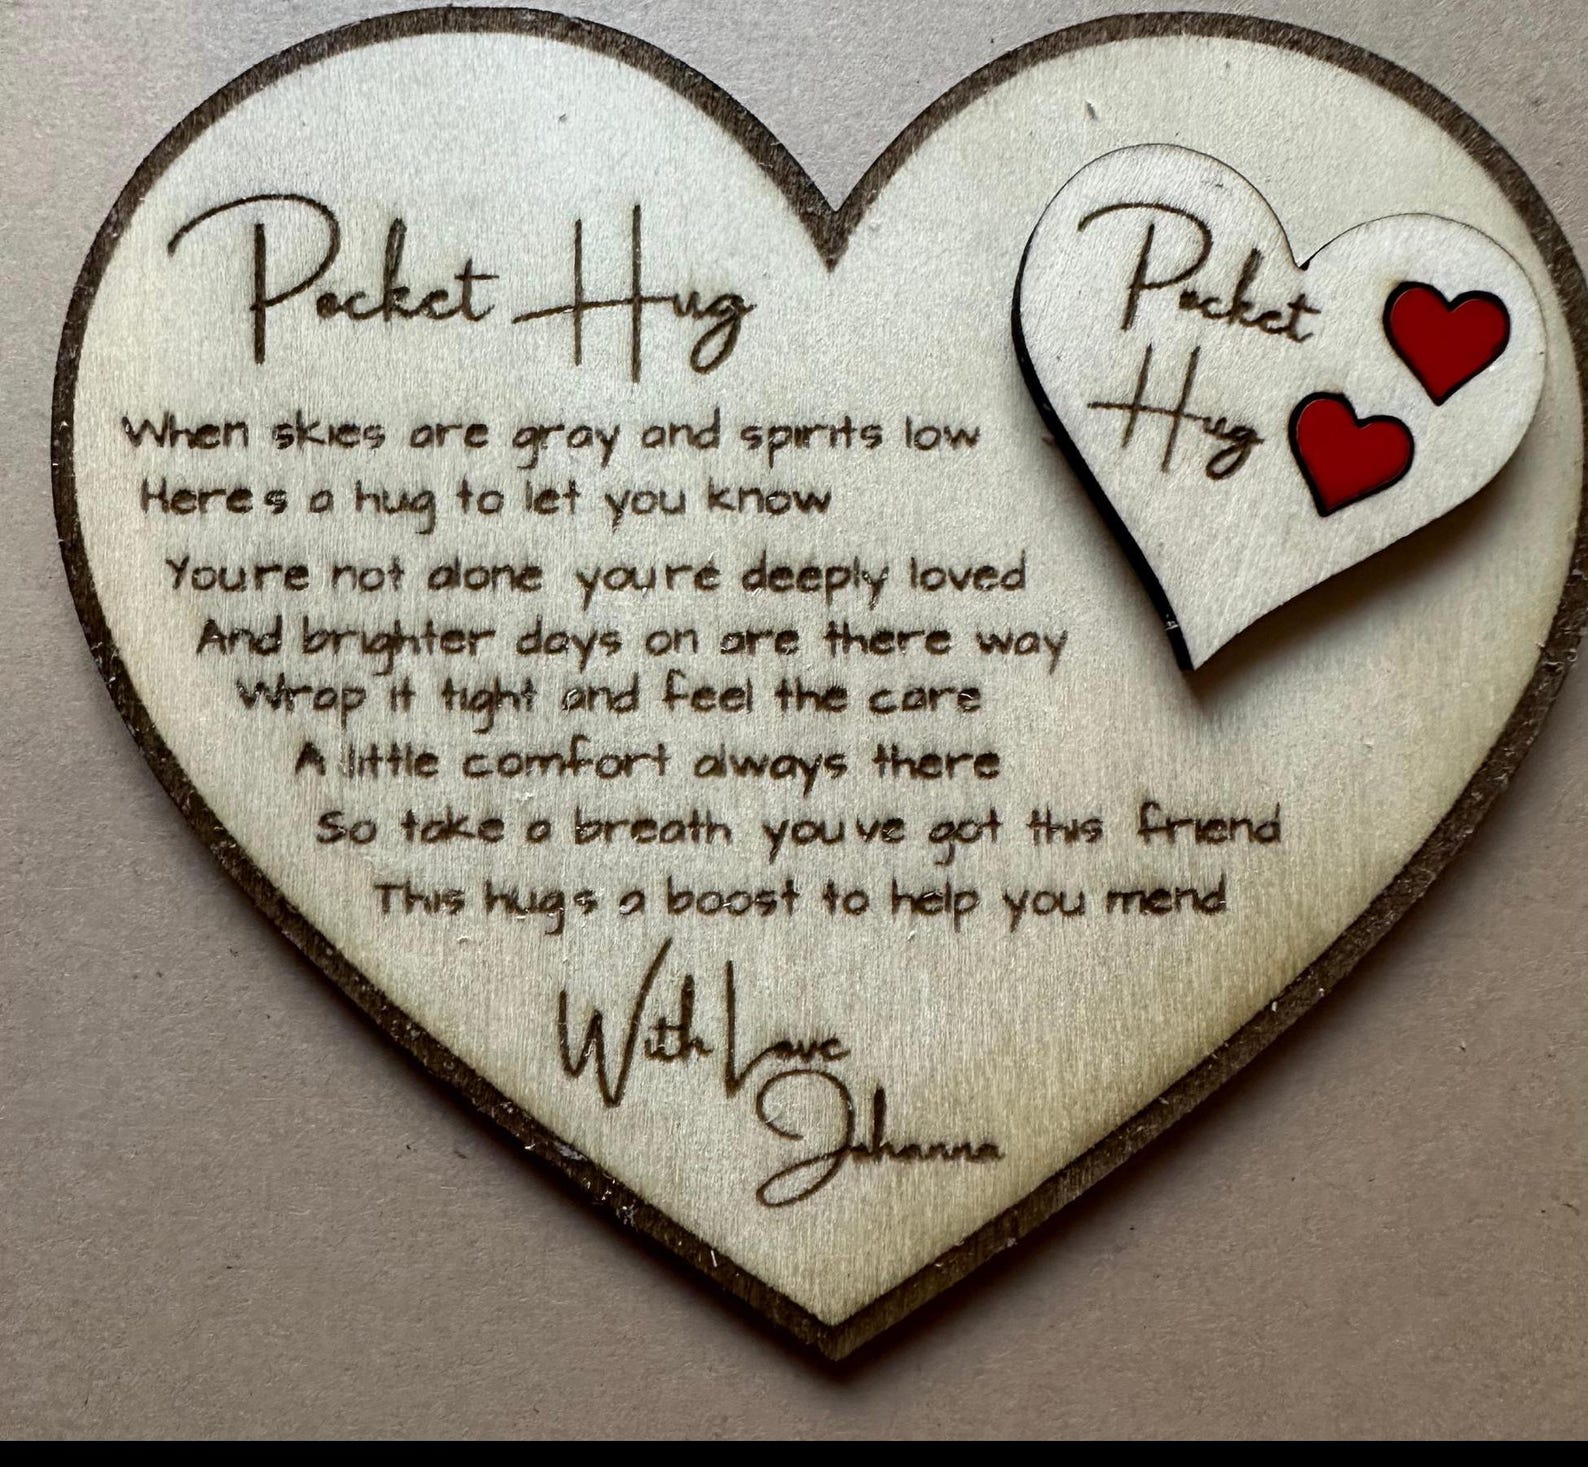 Pocket Hug
When skies are gray and spirits low
Heres a hug to let you know
Youre not alone youre deeply loved
And brighter days on are there way
Wrap it tight and feel the care
A little comfort always there
So take a breath youve got this friend
This hugs a boost to help you mend
With Love
Johanna
Pocket
Hug